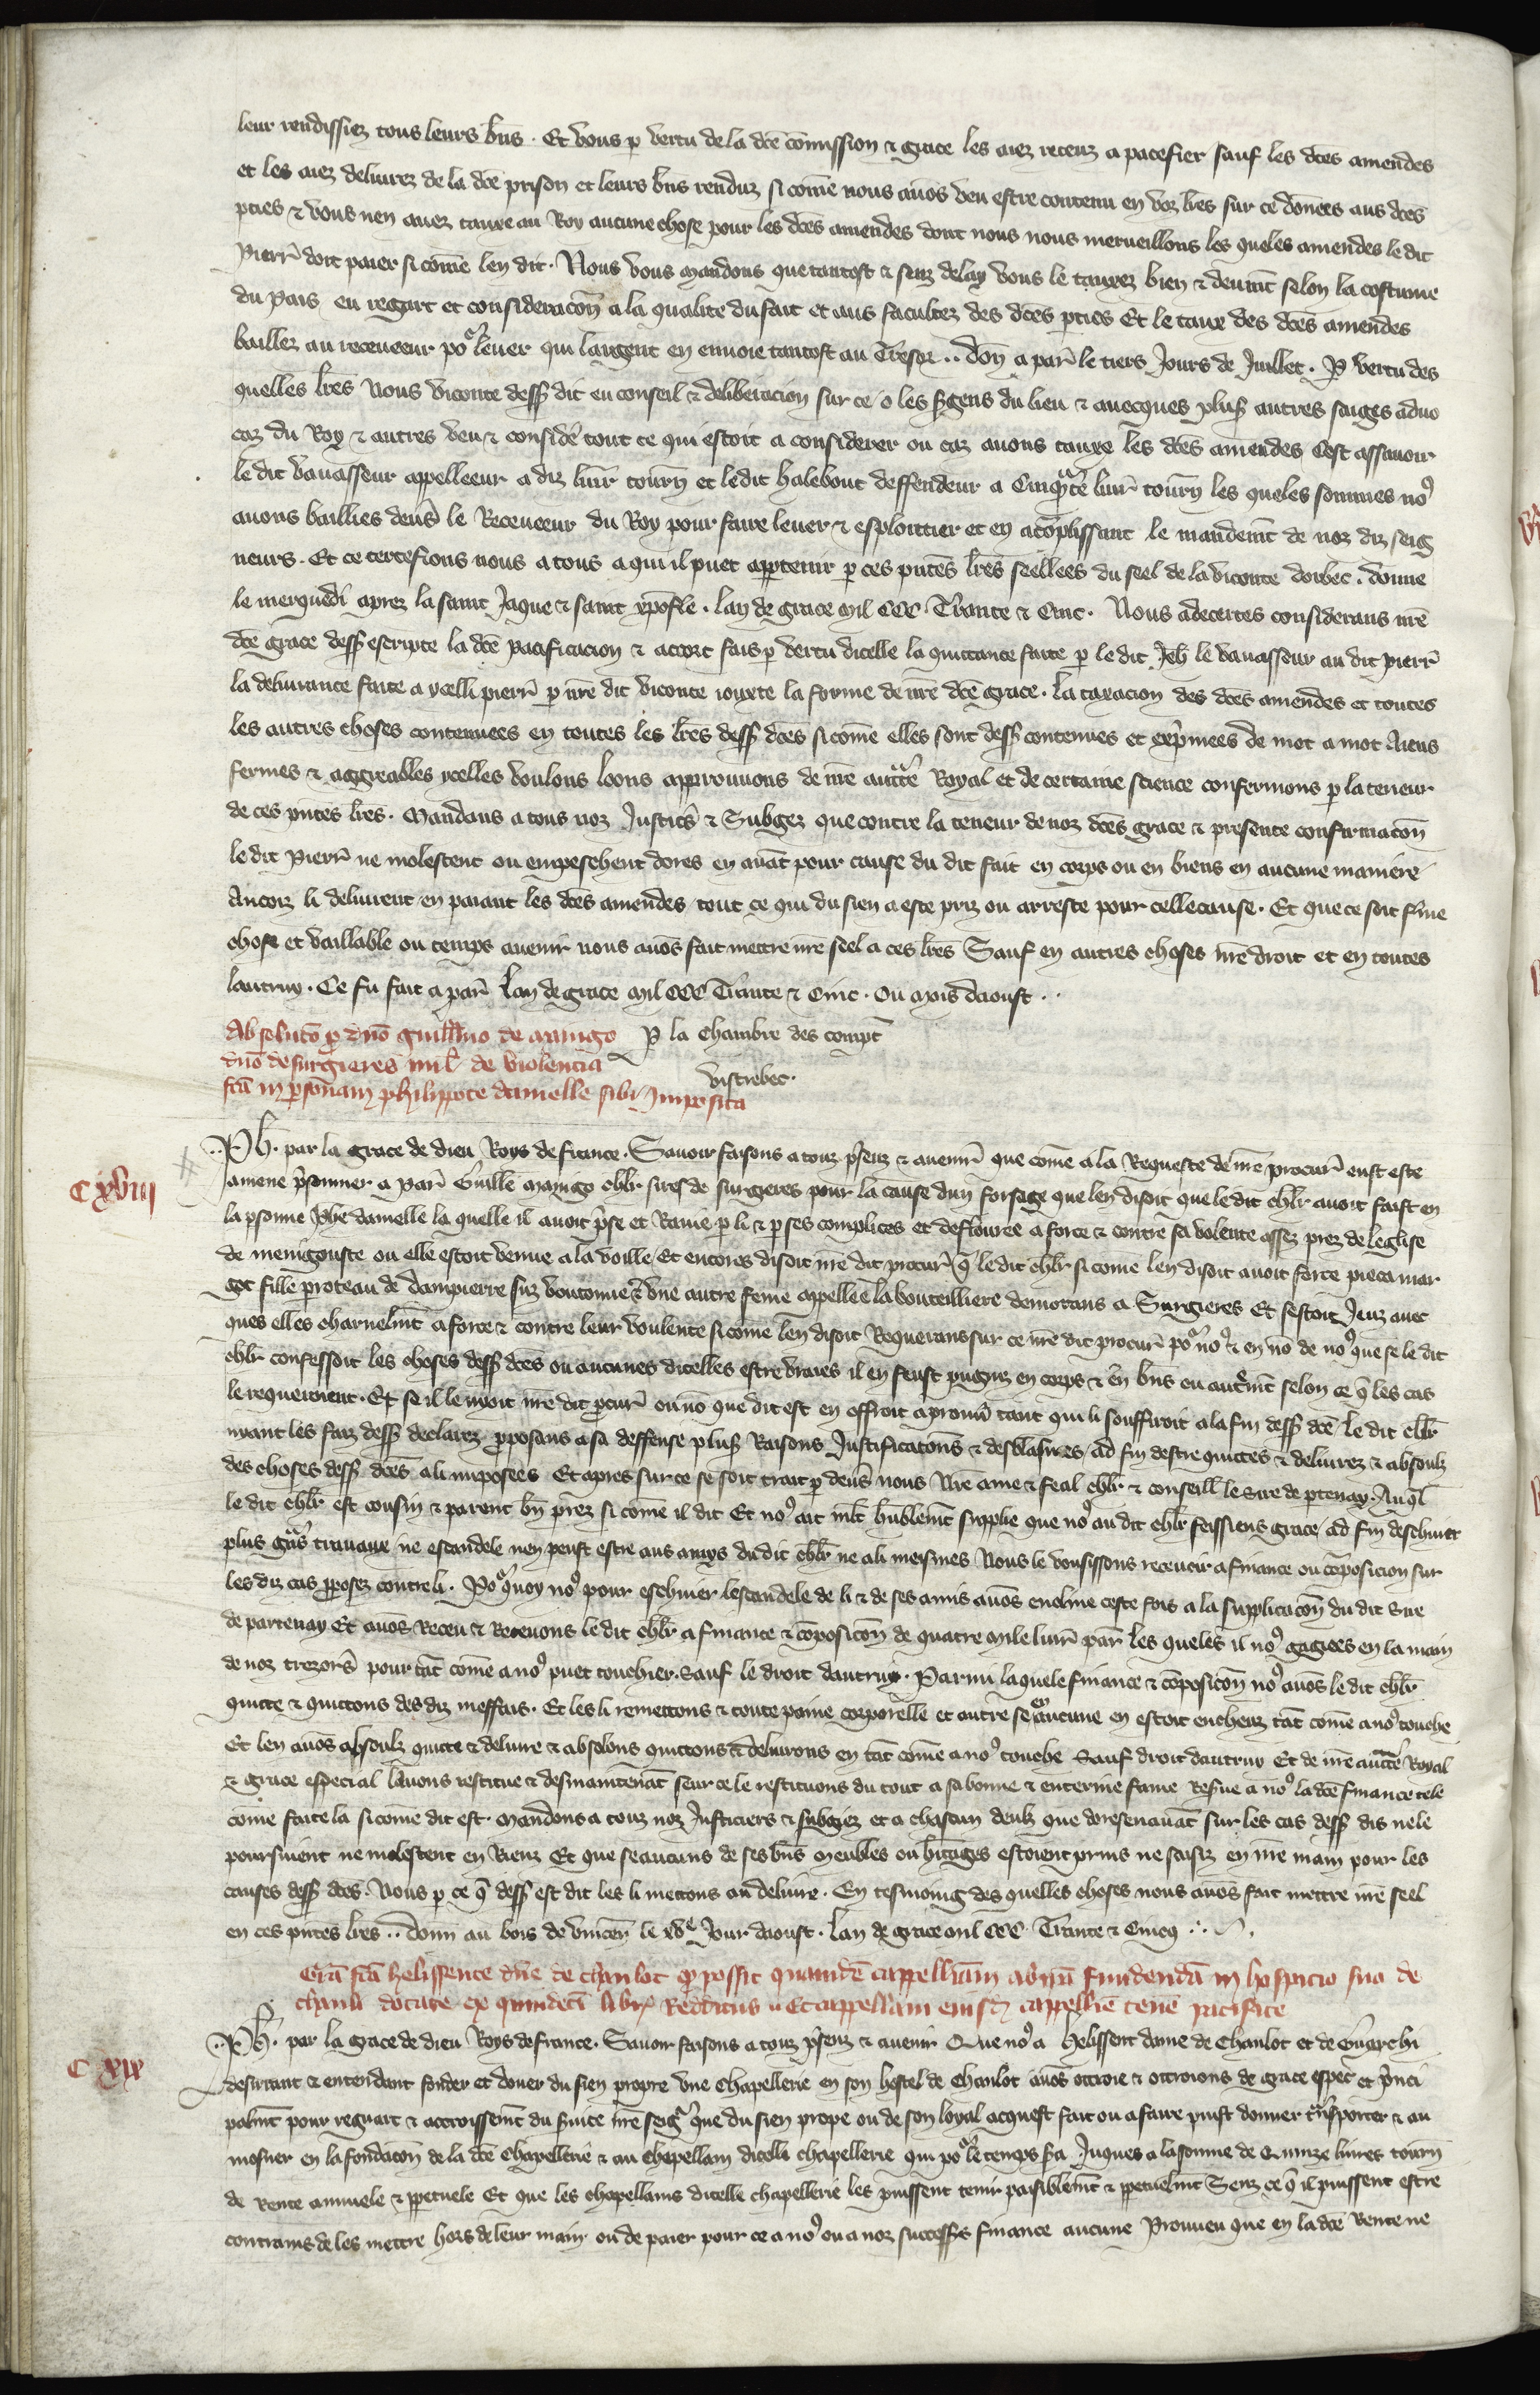 leur rendissiez tous leurs bn̄s . Et vous p̱ vertu de la dc̄e cōmission & grace les aiez receuz a pacefier sauf les dc̄es amendes
et les aiez deliurez de la dc̄e prison et leurs bn̄s renduz si com̄e nous auōs veu estre contenu en voz lr̄es sur ce donees aus dc̄es
p̱ties & vous nen auez tauxe au Roy aucune chose pour les dc̄es amendes dont nous nous merueillons les queles amendes le dit
Pierr̄ doit paier si com̄e len dit . Nous vous mandons que tantost & senz delay vous le tauxez bien & deuem̄t selon la costume
du pais eu regart et consideracōn a la qualite du fait et aus facultez des dc̄es p̱ties Et le taux des dc̄es amendes
baillez au receueeur po᷑ leuer qui largent en enuoie tantost au Tresor .. don̄ a par̄ le tiers Jours de Juillet . P̱ vertu des
quelles lr̄es Nous viconte dess̄ dit eu conseil & deliberacion sur ce o les s̄gens du lieu & auecques plus̄ autres saiges aduo
caz du Roy & autres veu & consider̄ tout ce qui estoit a considerer ou cas auons tauxe les dc̄es amendes Cest assauoir
le dit vauasseur appelleeur a diz liur̄ tourn̄ et ledit halebout deffendeur a Cinquāte liur̄ tourn̄ les queles sommes no⁹
auons baillies deuer̄s le Receueeur du Roy pour faire leuer & esploittier et en acōplissant le mandem̄t de noz diz seig
neurs . Et ce certefions nous a tous a qui il puet app̱tenir p̱ ces pn̄tes lr̄es seellees du seel de la viconte dorbec . donne
le merquedi aprez la saint Jaque & saint xp̄ofle . lan de grace mil CCC . Trante & Cinc . Nous adecertes considerans nr̄e
dc̄e grace dess̄ escripte la dc̄e pacificacion & acort fais p̱ vertu dicelle la quittance faite p̱ le dit Jeh̄ le vauasseur au dit pierr̄
la deliurance faite a ycelli pierr̄ p̱ nr̄e dit viconte iouxte la forme de nr̄e dc̄e grace . la taxacion des dc̄es amendes et toutes
les autres choses contenuees en toutes les lr̄es dess̄ dc̄es si com̄e elles sont dess̄ contenues et exp̄mees de mot a mot Aiens
fermes & aggreables ycelles voulons loons approuuons de nr̄e auct̄te Royal et de certaine science confermons p̱ la teneur
de ces pn̄tes lr̄es . Mandans a tous noz Justic̄s & Subgez que contre la teneur de noz dc̄es grace & presente confirmacōn
le dit Pierr̄ ne molestent ou empeschent dores en auāt pour cause du dit fait en corps ou en biens en aucune maniere
Ancoiz li deliurent en paiant les dc̄es amendes tout ce qui du sien a este priz ou arreste pour celle cause . Et que ce soit f̄me
chose et vaillable ou temps auenir nous auōs fait mettre nr̄e seel a ces lr̄es Sauf en autres choses nr̄e droit et en toutes
lautruy . Ce fu fait a par̄ Lan de grace mil CCC Trante & Cinc . Ou mois daoust ..
Absolutō p̱ dn̄o guill̄mo de maingo P̱ la Chambre des compt̄
dn̄o de surgieres mil̄ de violencia
vistrebec .
fc̄a in p̱sonam philippote damelle sibi Imposita
Ph̄ . par la grace de dieu Roys de france . Sauoir faisons a touz p̄senz & auenir̄ que com̄e a la Requeste de nr̄e procur̄ eust este
CXVIII
amene p̄sonnier a Par̄ Guille maingo ch̄lr sires de surgeres pour la cause dun forsage que len disoit que le dit ch̄lr auoit faist en
la p̱sonne Ph̄e damelle la quelle il auoit p̄se et Rauie p̱ li & p̱ ses complices et deflouree a force & contre sa volente assez prez de leglise
de menigouste ou elle estoit venue a la voille Et encores disoit nr̄e dit procur̄ q̄ le dit ch̄lr si com̄e len disoit auoit force pieca mar
got fille proteau de dampierre suz voutonne & vne autre feme appellee la bouteilliere demorans a Surgieres Et sestoit Jeuz auec
ques elles charnelm̄t a force & contre leur voulente si com̄e len disoit Requerans sur ce nr̄e dit procur̄ po᷑ no⁹ & en nō de no⁹ que se le dit
ch̄lr confessoit les choses dess̄ dc̄es ou aucunes dicelles estre vraies il en feust pugniz en corps & en bn̄s ou autrem̄t selon ce q̄ les cas
le requeiroient . Et se il le nyoit nr̄e dit p̱cur̄ ou nō que dit est en offroit a prouū tant qui li souffiroit a la fin dess̄ dc̄e le dit ch̄lr
nyant les faiz dess̄ declarez p̱posans a sa deffense plus̄ Raisons Justificatōns & desblasmes ad fin destre quittes & deliurez & absoulz
des choses dess̄ dc̄es a li imposees Et apres sur ce se soit trait p̱ deuer̄s nous Nr̄e ame & feal ch̄lr & conseill̄ le Sire de p̱tenay . Auq̄l
le dit ch̄lr est cousin & parent bn̄ prez si com̄e il dit Et no⁹ ait mlt̄ hublem̄t supplie que no⁹ au dit ch̄lr feissiens grace ad fin deschiuer
plus grās trauaux ne escandele nen peust estre aus amys du dit ch̄lr ne a li meismes Nous le vousissons receuoir a finance ou cōposicion sur
les diz cas p̱posez contre li . Po᷑quoy no⁹ pour eschiuer lescandele de li & de ses amis auōs encline ceste fois a la supplicacōn du dit Sire
de partenay Et auōs Receu & Receuons le dit ch̄lr a finance & cōposicōn de quatre mile liur̄ par̄ les queles il no⁹ gagiees en la main
de noz trezorer̄s pour tāt com̄e a no⁹ puet touchier . Sauf le droit dautruy . Parmi laquele finance & cōposicōn no⁹ auōs le dit ch̄lr
quitte & quittons des diz meffais . Et les li remettons & toute paine corporelle et autre se en aucune en estoit encheuz tāt com̄e a no⁹ touche
Et len auōs absoulz quitte & deliure & absolons quittons & deliurons en tāt com̄e a no⁹ touche Sauf droit dautruy Et de nr̄e auct̄te Royal
& grace especial lauons restitue & desmaintenāt seur ce le restituons du tout a sa bonne & enterine fame Resue a no⁹ la dc̄e finance tele
come faite la si com̄e dit est . Mandons a touz noz Justiciers & subgiez et a chascun deulz que doresenauāt sur les cas dess̄ dis ne le
poursuient ne molestent en Riens Et que se aucuns de ses bn̄s meubles ou h̄itages estoient prins ne saisiz en nr̄e main pour les
causes dess̄ dc̄es . Nous p̱ ce q̄ dess̄ est dit les li mettons au deliure . En tesmoing des quelles choses nous auōs fait mettre nr̄e seel
en ces pn̄tes lr̄es .. donn au bois de vincen̄ le XVᵉ Jour daoust . Lan de grace mil CCC Trante & Cincq
Grā fc̄a helissente dn̄e de chanlot q̱ possit quamdē cappelliam ab ip̄a fundendā in hospicio suo de
chanl̄ dotare ex quindecī libr̄ Redditus Et cappellam eiusd̄ cappellīe tenē pacifice
Ph̄ . par la grace de dieu Roys de france . Sauoir faisons a touz p̄senz & auenir Que no⁹ a helissent dame de Chanlot et de Guerchi
CXIX
desirrant & entendant fonder et doner du sien propre vne Chapellerie en son hostel de Chanlot auōs ottroie & ottroions de grace especī et p̄nci
palm̄t pour reguart & accroissem̄t du s̄uice nr̄e seig᷑ que du sien prope ou de son loyal acquest fait ou a faire puist donner tn̄sporter & au
mosner en la fondacōn de la dc̄e Chapellerie & au Chepellain dicelli chapellerie qui po᷑ le temps s̄a Juques a la somme de Quinze liures tourn̄
de Rente annuele & p̱petuele Et que les chapellains dicelle chapellerie les puissent tenir paisiblem̄t & p̱petuelm̄t Senz ce q̄ il puissent estre
contrains de les mettre hors de leur main ou de paier pour ce a no⁹ ou a noz success̄rs finance aucune Prouueu que en la dc̄e Rente ne